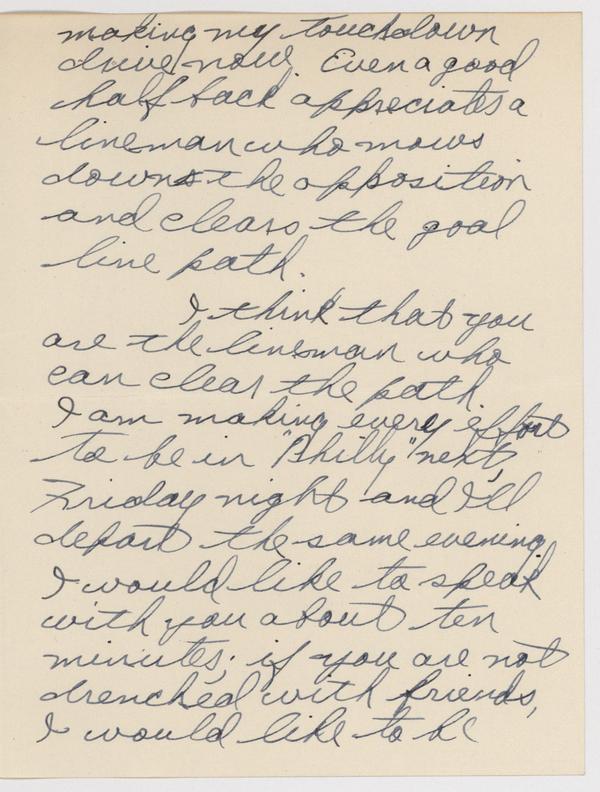 making my touchdown
drive now. Even a good
half back appreciates a
lineman who mows
down the opposition
and clears the goal
line path.
I think that you
are the lineman who
can clear the path.
I am making every effort
to be in "Philly" next
Friday night and I'll
depart the same evening.
I would like to speak
with you about ten
minutes; if you are not
drenched with friends,
I would like to be